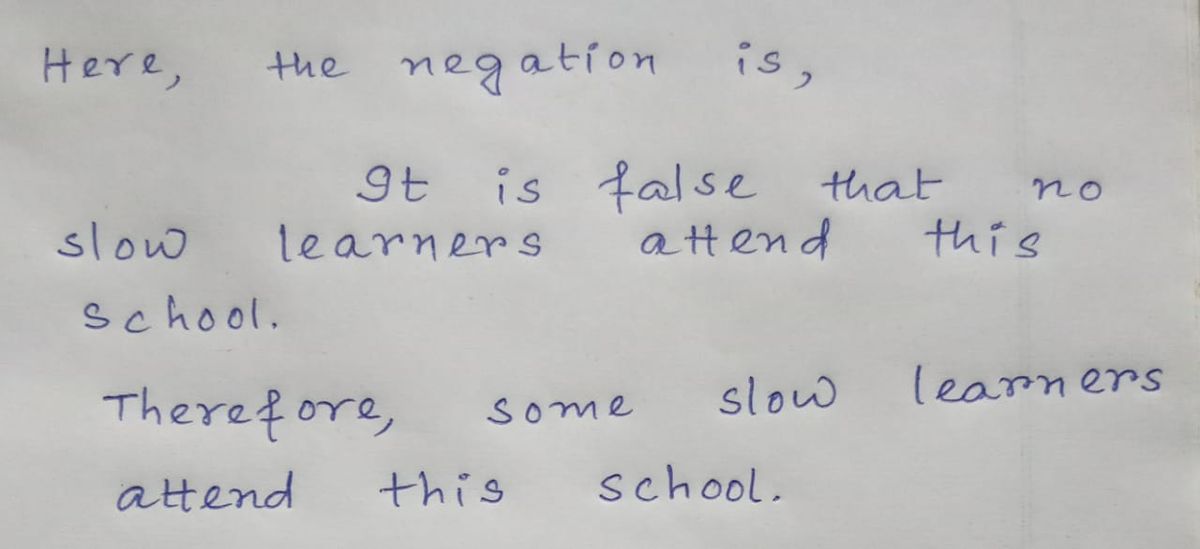 Here, the negation is,
It is false that no
slow learners attend this
school.
Therefore, some slow learners
attend this school.